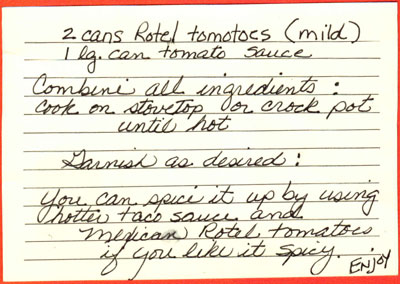 2 cans Rotel tomatoes (mild)
1 lg. can tomato sauce
Combine all ingredients:
Cook on stovetop or crock pot
until hot
Garnish as desired:
You can spice it up by using
hotter taco sauce and
Mexican Rotel tomatoes
if you like it spicy.
ENJOY